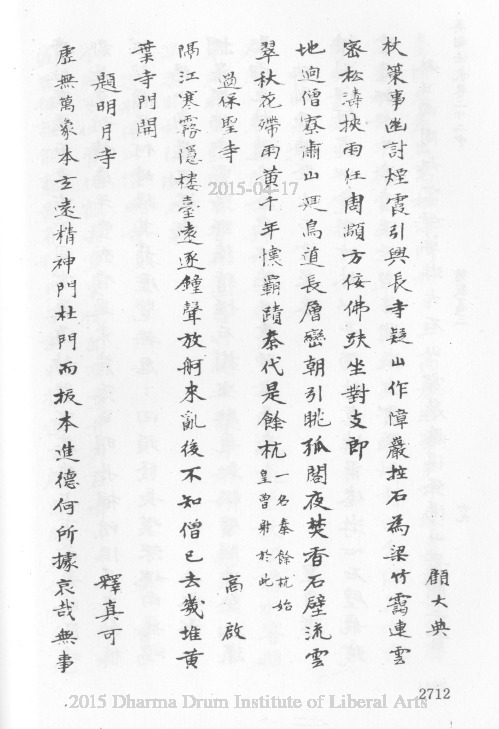 顧大典
杖策事幽討煙霞引興長寺疑山作障巖拄石為梁竹靄連雲
密松濤挾雨狂周顒方佞佛趺坐對支郎
地迥僧寮肅山迴鳥道長層巒朝引眺孤閣夜焚香石壁流雲
翠秋花帶雨黃千年懷霸蹟秦代是餘杭一名秦餘杭始
皇曾射於此
過保聖寺 高啟
隔江寒霧隱樓臺遠逐鐘聲放舸來亂後不知僧已去幾堆黃
葉寺門開
題明月寺 釋真可
虛無萬象本玄遠精神門杜門而振本進德何所據哀哉無事
2015-04-17
2712
2015 Dharma Drum Institute of Liberal Arts